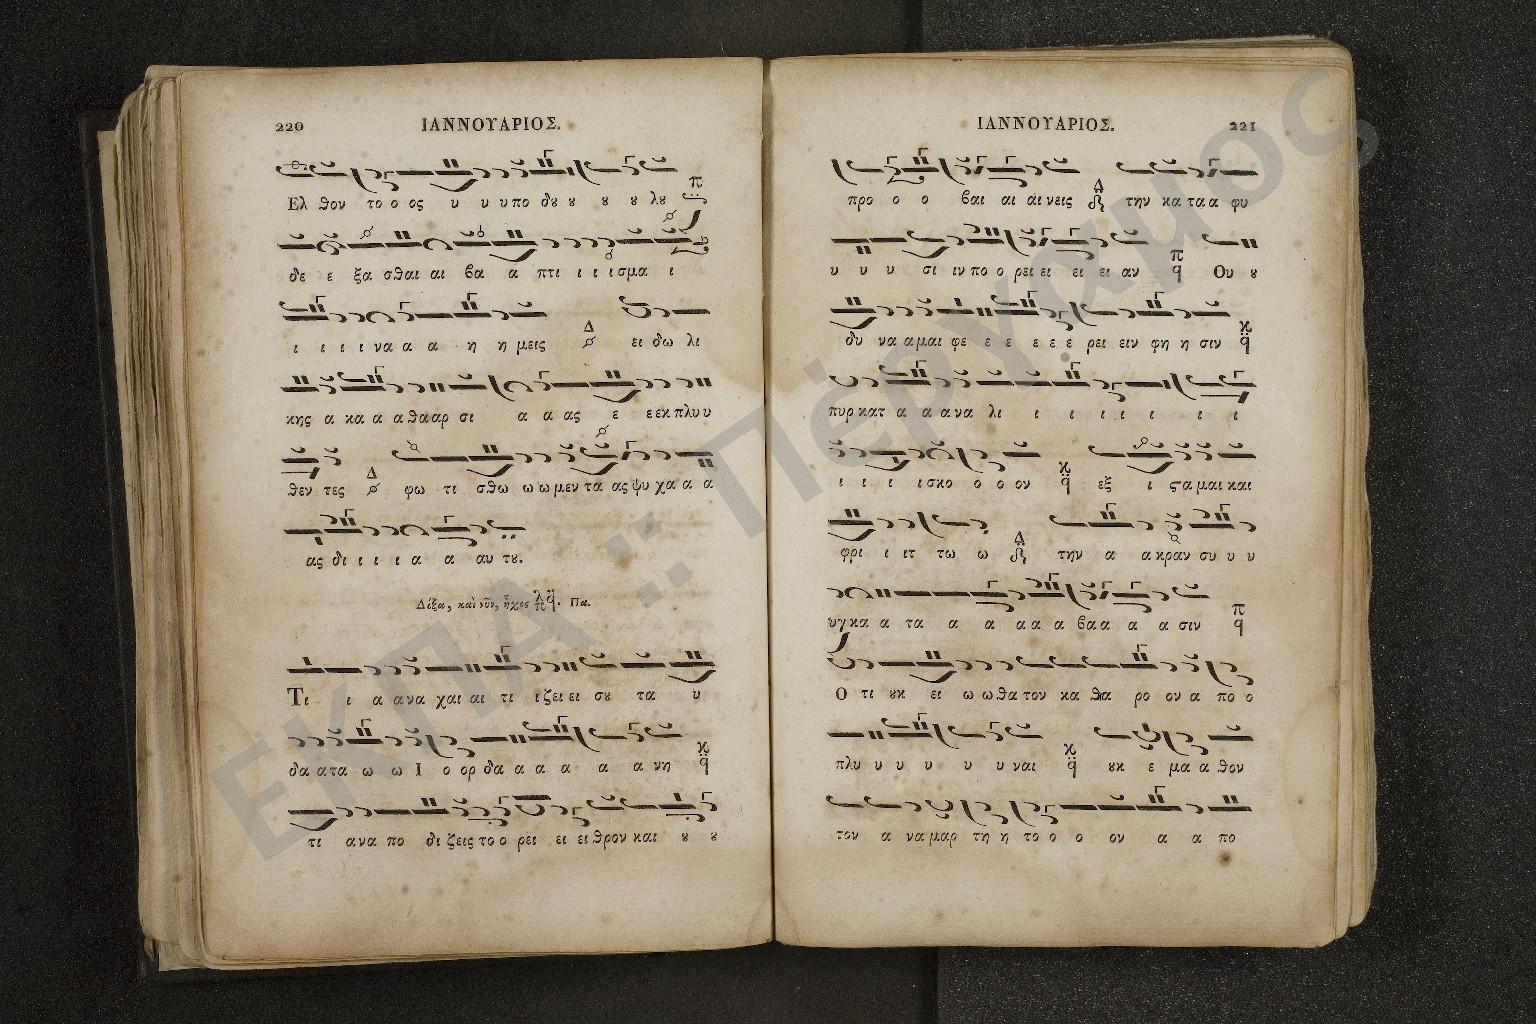 220 ΙΑΝΝΟΥΑΡΙΟΣ.
Ελ θον το ο ος υ υ υ πο δȣ ȣ ȣ ȣ λȣ
δε ε ξα σθαι αι βα α πτι ι ι ισμα ι
ι ι ι ι να α α η η μεις Δ ει δω λι
κης α κα α α θααρ σι α α ας ε ε εκ πλυ υ
θεν τες Δ φω τι σθω ω ω μεν τα ας ψυ χα α α
ας δι ι ι ι α α αυ τȣ.
Δόξα, καὶ νῦν, ἦχος λ π q. Πα.
Τι ι α ανα χαι αι τι ι ζει ει σȣ τα υ
δα α τα ω ω Ι ο ορ δα α α α α α νη
τι ανα πο δι ζεις το ο ρει ει ει θρον και ȣ ȣ
ΙΑΝΝΟΥΑΡΙΟΣ. 221
προ ο ο βαι αι αι νεις Δ την κα τα α φυ
υ υ υ σι ιν πο ο ρει ει ει ει αν Ου ȣ
δυ να α μαι φε ε ε ε ε ε ρει ειν φη η σιν
πυρ κατ α α ανα λι ι ι ι ι ι ι ι
ι ι ι ι σκο ο ο ον εξ ι ϛα μαι και
φρι ι ιτ τω ω Δ την α α κραν συ υ υ
υγ κα α τα α α α α α βα α α α σιν
Ο τι ȣκ ει ω ω θα τον κα θα ρο ον α πο ο
πλυ υ υ υ υ υ ναι ȣκ ε μα α θον
τον α να μαρ τη η το ο ο ο ον α α πο
ΕΚΠΑ :: Πέργαμος